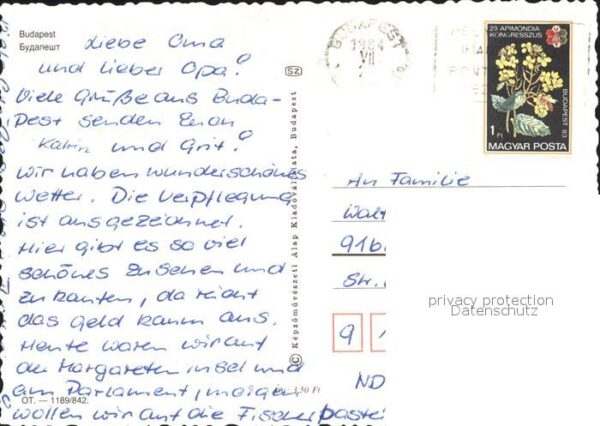 Budapest
Будапешт
Liebe Oma
und lieber Opa!
Viele Grüße aus Buda-
pest senden Euch
Katrin und Grit!
Wir haben wunderschönes
Wetter. Die Verpflegung
ist ausgezeichnet.
Hier gibt es so viel
schönes zu sehen und
zu kaufen, da reicht
das Geld kaum aus.
Heute waren wir auf
der Margareteninsel und
am Parlament, morgen
wollen wir auf die Fischerbastei
OT. — 1189/842.
SZ
© Képzőművészeti Alap Kiadóvállalata, Budapest
3,50 Ft
BUDAPEST
1984
VII
29. APIMONDIA
KONGRESSZUS
BUDAPEST 83
1 Ft
MAGYAR POSTA
An Familie
Walt
91b.
Str.
9 1
ND
privacy protection
Datenschutz